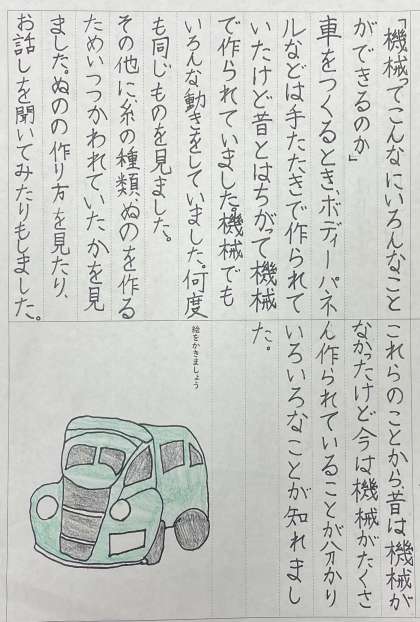 「機械ってこんなにいろんなこと
ができるのか」
車をつくるとき、ボディーパネ
ルなどは手たたきで作られて
いたけど昔とはちがって機械
で作られていました。機械でも
いろんな動きをしていました。何度
も同じものを見ました。
その他に、糸の種類、ぬのを作る
ためいつつかわれていたかを見
ました。ぬのの作り方を見たり、
お話しを聞いてみたりもしました。
これらのことから、昔は機械が
なかったけど今は機械がたくさ
ん作られていることが分かり
いろいろなことが知れまし
た。
絵をかきましょう